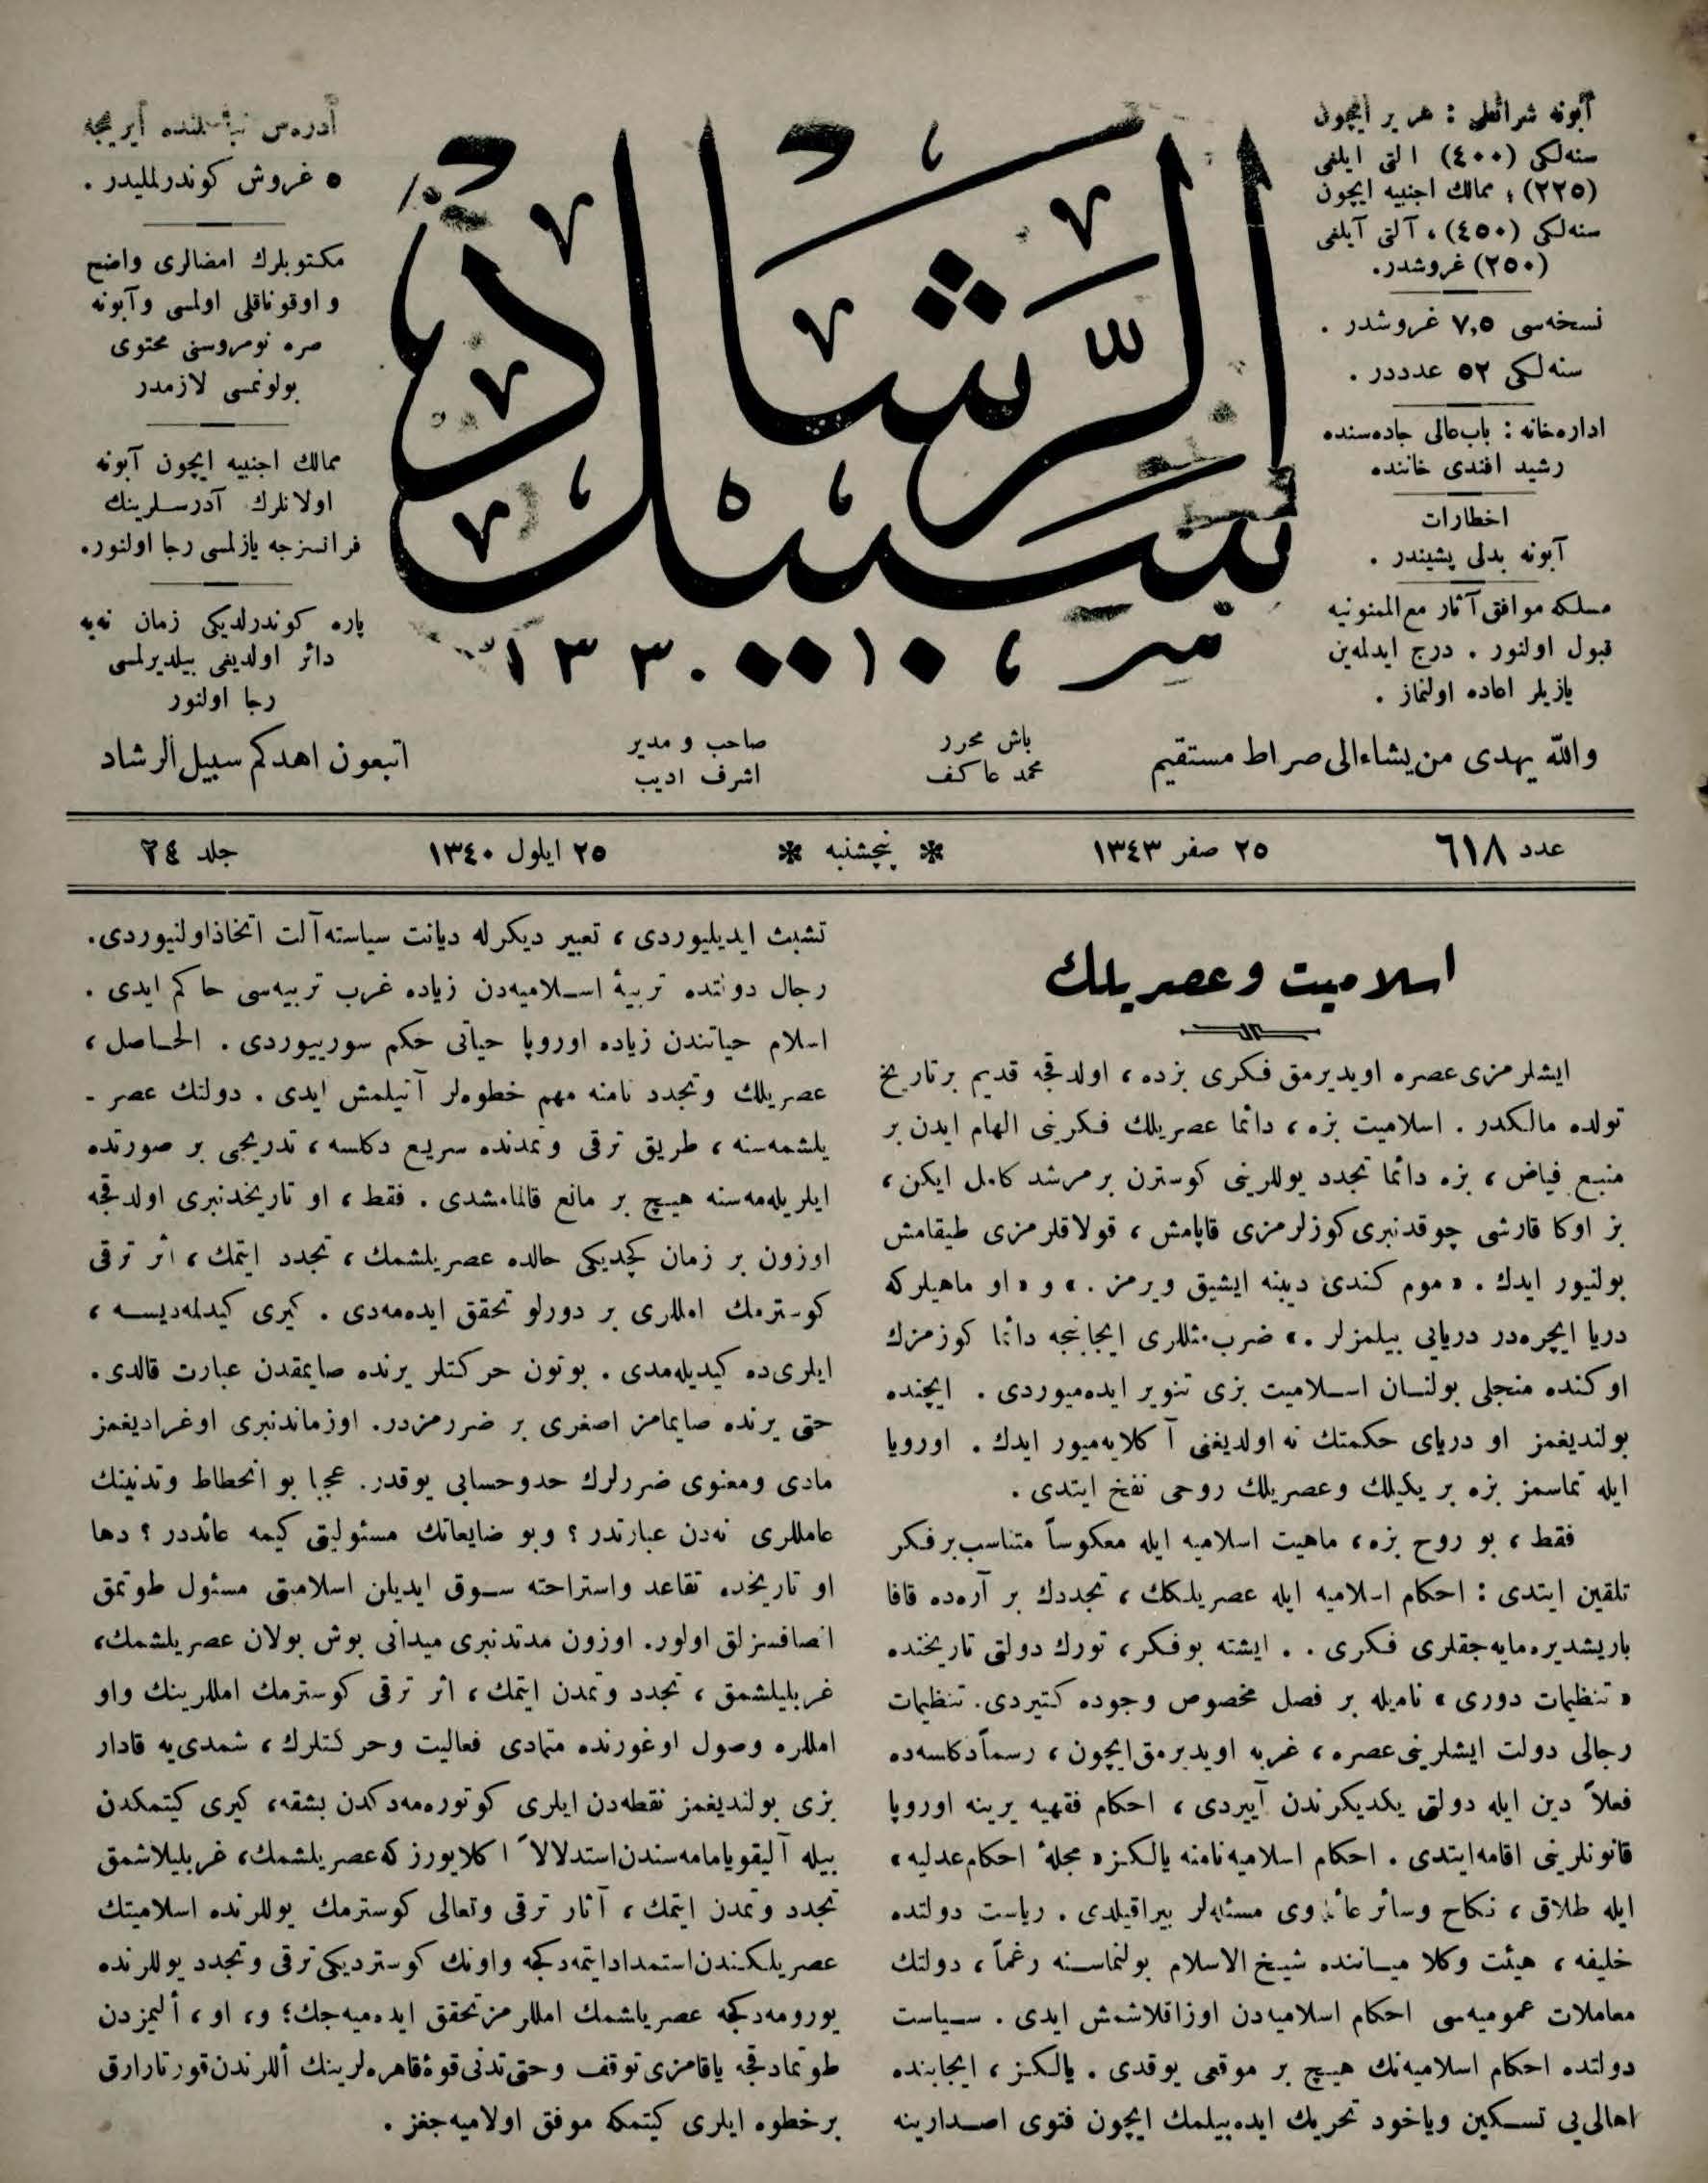 آبونه شرائطی : هر یر ایچون
سنه‌لکی (٤٠٠) التی ایلغی
(٢٢٥) ؛ ممالك اجنبیه ایچون
سنه‌لکی (٤٥٠) ، آلتی آیلغی
(٢٥٠) غروشدر.
نسخه‌سی ٧,٥ غروشدر .
سنه‌لکی ٥٢ عدددر .
اداره‌خانه : باب‌عالی جاده‌سنده
رشید افندی خاننده
اخطارات
آبونه بدلی پشیندر .
مسلکه موافق آثار مع‌الممنونیه
قبول اولنور . درج ایدلمه‌ین
یازیلر اعاده اولنماز .
سبیل الرشاد
١٣٣٠
آدره‌س تبدیلنده آیریجه
٥ غروش کوندرلملیدر .
مکتوبلرك امضالری واضح
و اوقوناقلی اولمسی وآبونه
صره نومروسنی محتوی
بولونمسی لازمدر
ممالك اجنبیه ایچون آبونه
اولانلرك آدرسلرینك
فرانسزجه یازلمسی رجا اولنور.
پاره کوندرلدیکی زمان نه‌یه
دائر اولدیغی بیلدیرلمسی
رجا اولنور
والله یهدی من یشاء الی صراط مستقیم
باش محرر
محمد عاکف
صاحب و مدیر
اشرف ادیب
اتبعون اهدکم سبیل الرشاد
عدد ٦١٨
٢٥ صفر ١٣٤٣
* پنجشنبه *
٢٥ ایلول ١٣٤٠
جلد ٢٤
اسلامیت و عصریلك
ایشلرمزی عصره اویدیرمق فکری بزده ، اولدقجه قدیم برتاریخ
تولده مالکدر . اسلامیت بزه ، دائما عصریلك فکرینی الهام ایدن بر
منبع فیاض ، بزه دائما تجدد یوللرینی کوسترن بر مرشد کامل ایکن ،
بز اوکا قارشی چوقدنبری کوزلرمزی قاپامش ، قولاقلرمزی طیقامش
بولنیور ایدك . « موم کندی دیبنه ایشیق ویرمز . » و « او ماهیلرکه
دریا ایچره‌در دریایی بیلمزلر . » ضرب‌مثللری ایجابنجه دائما کوزمزك
اوکنده منجلی بولنان اسلامیت بزی تنویر ایده‌میوردی . ایچنده
بولندیغمز او دریای حکمتك نه اولدیغنی آکلایه‌میور ایدك . اوروپا
ایله تماسمز بزه بر یکیلك وعصریلك روحی نفخ ایتدی .
فقط ، بو روح بزه ، ماهیت اسلامیه ایله معکوساً متناسب برفکر
تلقین ایتدی : احکام اسلامیه ایله عصریلکك ، تجددك بر آره‌ده قافا
باریشدیره‌مایه‌جقلری فکری . . ایشته بوفکر ، تورك دولتی تاریخنده
« تنظیمات دوری » نامیله بر فصل مخصوص وجوده کتیردی . تنظیمات
رجالی دولت ایشلرینی عصره ، غربه اویدیرمق ایچون ، رسماً دکلسه‌ده
فعلاً دین ایله دولتی یکدیکرندن آییردی ، احکام فقهیه یرینه اوروپا
قانونلرینی اقامه ایتدی . احکام اسلامیه نامنه یالکز « مجلهٔ احکام عدلیه »
ایله طلاق ، نکاح وسائر عائلوی مسئله‌لر بیراقیلدی . ریاست دولتده
خلیفه ، هیئت وکلا میاننده شیخ الاسلام بولنماسنه رغماً ، دولتك
معاملات عمومیه‌سی احکام اسلامیه‌دن اوزاقلاشمش ایدی . سیاست
دولتده احکام اسلامیه‌نك هیچ بر موقعی یوقدی . یالکز ، ایجابنده
اهالی‌یی تسکین ویاخود تحریك ایده‌بیلمك ایچون فتوی اصدارینه
تشبث ایدیلیوردی ، تعبیر دیکرله دیانت سیاسته آلت اتخاذ اولنیوردی.
رجال دولتده تربیهٔ اسلامیه‌دن زیاده غرب تربیه‌سی حاکم ایدی .
اسلام حیاتندن زیاده اوروپا حیاتی حکم سورییوردی . الحاصل ،
عصریلك وتجدد نامنه مهم خطوه‌لر آتیلمش ایدی . دولتك عصر -
یلشمه‌سنه ، طریق ترقی وتمدنده سریع دکلسه ، تدریجی بر صورتده
ایلریله‌مه‌سنه هیچ بر مانع قالمامشدی . فقط ، او تاریخدنبری اولدقجه
اوزون بر زمان کچدیکی حالده عصریلشمك ، تجدد ایتمك ، اثر ترقی
کوسترمك امللری بر دورلو تحقق ایده‌مه‌دی . کیری کیدلمه‌دیسه ،
ایلری‌ده کیدیله‌مدی . بوتون حرکتلر یرنده صایمقدن عبارت قالدی.
حتی یرنده صایمامز اصغری بر ضررمزدر. اوزماندنبری اوغرادیغمز
مادی ومعنوی ضررلرك حدوحسابی یوقدر. عجبا بو انحطاط وتدنینك
عامللری نه‌دن عبارتدر ؟ وبو ضایعاتك مسئولیتی کیمه عائددر ؟ دها
او تاریخده تقاعد واستراحته سوق ایدیلن اسلامیتی مسئول طوتمق
انصافسزلق اولور. اوزون مدتدنبری میدانی بوش بولان عصریلشمك،
غربلیلشمق ، تجدد وتمدن ایتمك ، اثر ترقی کوسترمك امللرینك واو
امللره وصول اوغورنده متمادی فعالیت وحرکتلرك ، شمدی‌یه قادار
بزی بولندیغمز نقطه‌دن ایلری کوتوره‌مه‌دکدن بشقه، کیری کیتمکدن
بیله آلیقویامامه‌سندن استدلالاً اکلایورز که عصریلشمك، غربلیلاشمق
تجدد وتمدن ایتمك ، آثار ترقی وتعالی کوسترمك یوللرنده اسلامیتك
عصریلکندن استمداد ایتمه‌دکجه واونك کوستردیکی ترقی وتجدد یوللرنده
یورومه‌دکجه عصریلشمك امللرمز تحقق ایده‌میه‌جك؛ و، او ، ألیمزدن
طوتمادقجه یاقامزی توقف وحتی تدنی قوهٔ قاهره‌لرینك أللرندن قورتارارق
برخطوه ایلری کیتمکه موفق اولامیه‌جغز .